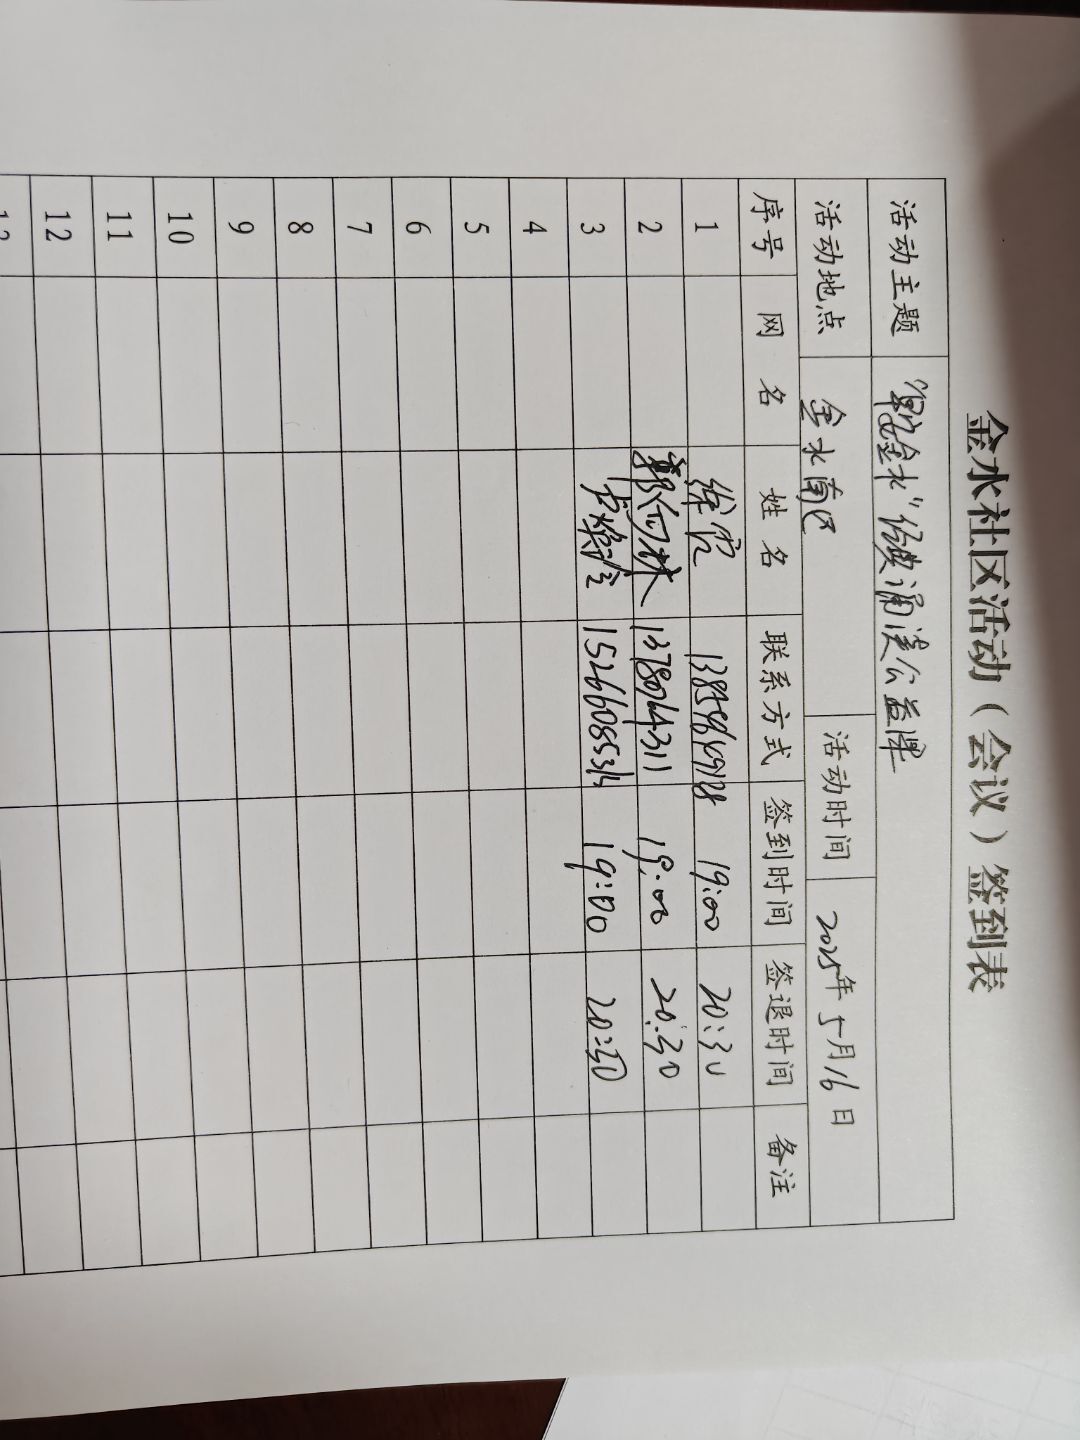 金水社区活动（会议）签到表
活动主题 金水"经典诵读公益课
活动地点 金水南区 活动时间 2025年5月16日
序号 网名 姓名 联系方式 签到时间 签退时间 备注
1 徐雪 19:00 20:30
2 1378064311 19:00 20:30
3 15266085314 19:00 20:30
4
5
6
7
8
9
10
11
12